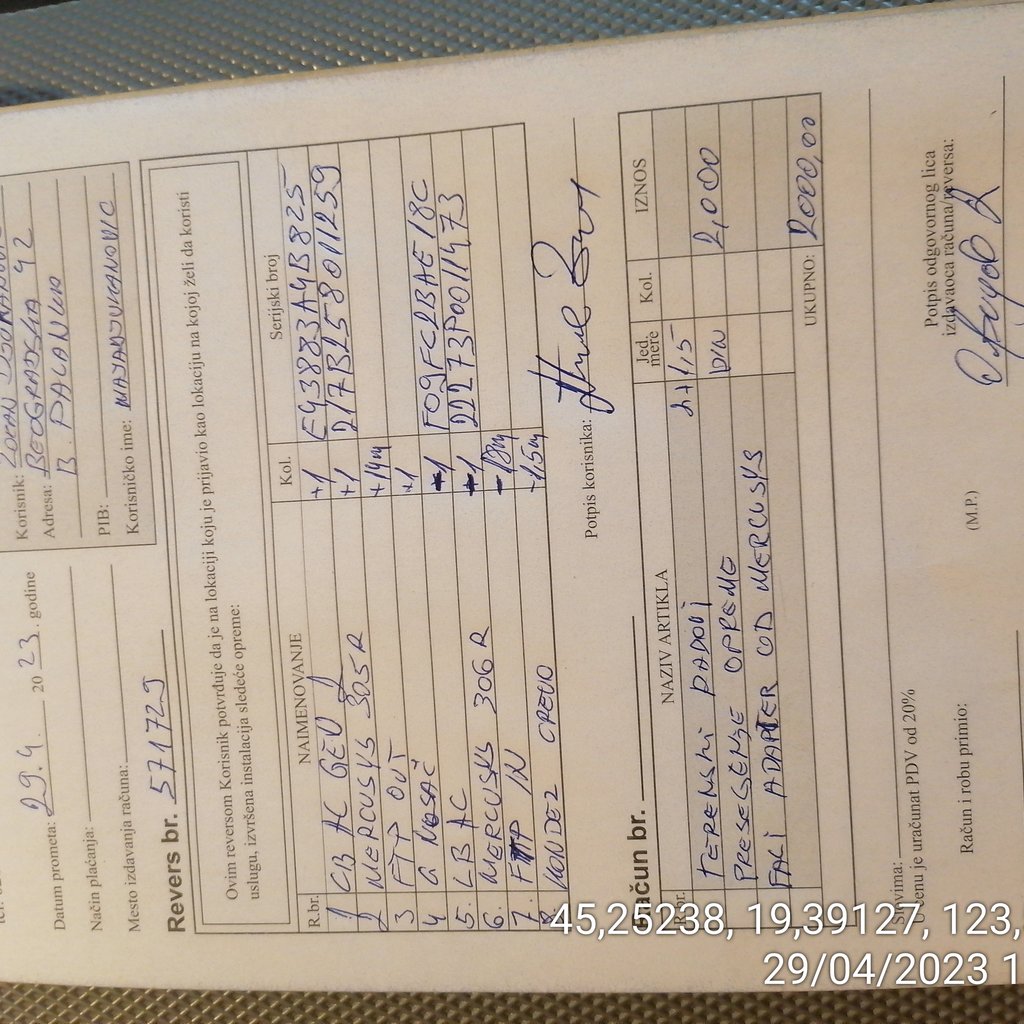 Datum prometa: 29.4. 2023. godine
Način plaćanja:
Mesto izdavanja računa:
Korisnik:
Adresa: BEOGRADSKA 42
B. PALANKA
PIB:
Korisničko ime: MAJADJUKANOVIC
Revers br. 571729
Ovim reversom Korisnik potvrđuje da je na lokaciji koju je prijavio kao lokaciju na kojoj želi da koristi
uslugu, izvršena instalacija sledeće opreme:
R.br. NAIMENOVANJE Kol. Serijski broj
1 LB AC GEN 2 +1 E43883A4B825
2 MERCUSYS 305R +1 217B258011259
3 FTP OUT +14m
4 G NOSAČ +1
5. LB AC -1 F09FC2BAE18C
6. MERCUSYS 306R -1 22273P0011473
7. FTP IN
8. KONDEZ CREVO -1,5m
Potpis korisnika:
Račun br.
R.br. NAZIV ARTIKLA Jed. mere Kol. IZNOS
TERENSKI RADOVI 2+1,5 2,000
PRESELENJE OPREME DIN
FALI ADAPTER OD MERCUSYS
UKUPNO: 2000,00
Slovima:
U cenu je uračunat PDV od 20%
Račun i robu primio:
(M.P.)
Potpis odgovornog lica
izdavaoca računa/reversa:
45,25238, 19,39127, 123,
29/04/2023 1